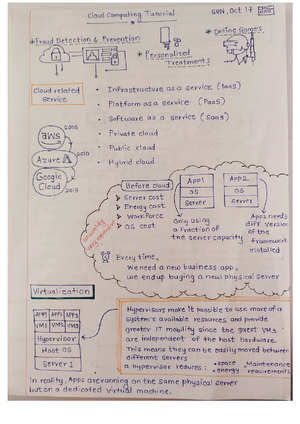 Cloud Computing Tutorial
SUN, Oct 17
* Fraud Detection & Prevention
* Online Games
* Personalized Treatments
Cloud related service
• Infrastructure as a service (IaaS)
• Platform as a service (PaaS)
• Software as a service (SaaS)
• Private cloud
• Public cloud
• Hybrid cloud
aws
2006
Azure
2010
Google Cloud
Before cloud
➤ Server cost
➤ Energy cost
➤ Workforce
➤ OS cost
App1
OS
Server
App2
OS
Server
Only using
a fraction of
the server capacity
Apps needs
diff version
of the
framework
installed
Every time,
We need a new business app,
we end up buying a new physical server
Virtualization
App1 App2 App3
VM1 VM2 VM3
Hypervisor
Host OS
Server 1
Hypervisors make it possible to use more of a
system's available resources and provide
greater IT mobility since the guest VMs
are independent of the host hardware.
This means they can be easily moved between
different servers
a hypervisor reduces: • space • Maintenance
• energy requirements
In reality, Apps are running on the same physical server
but on a dedicated virtual machine.